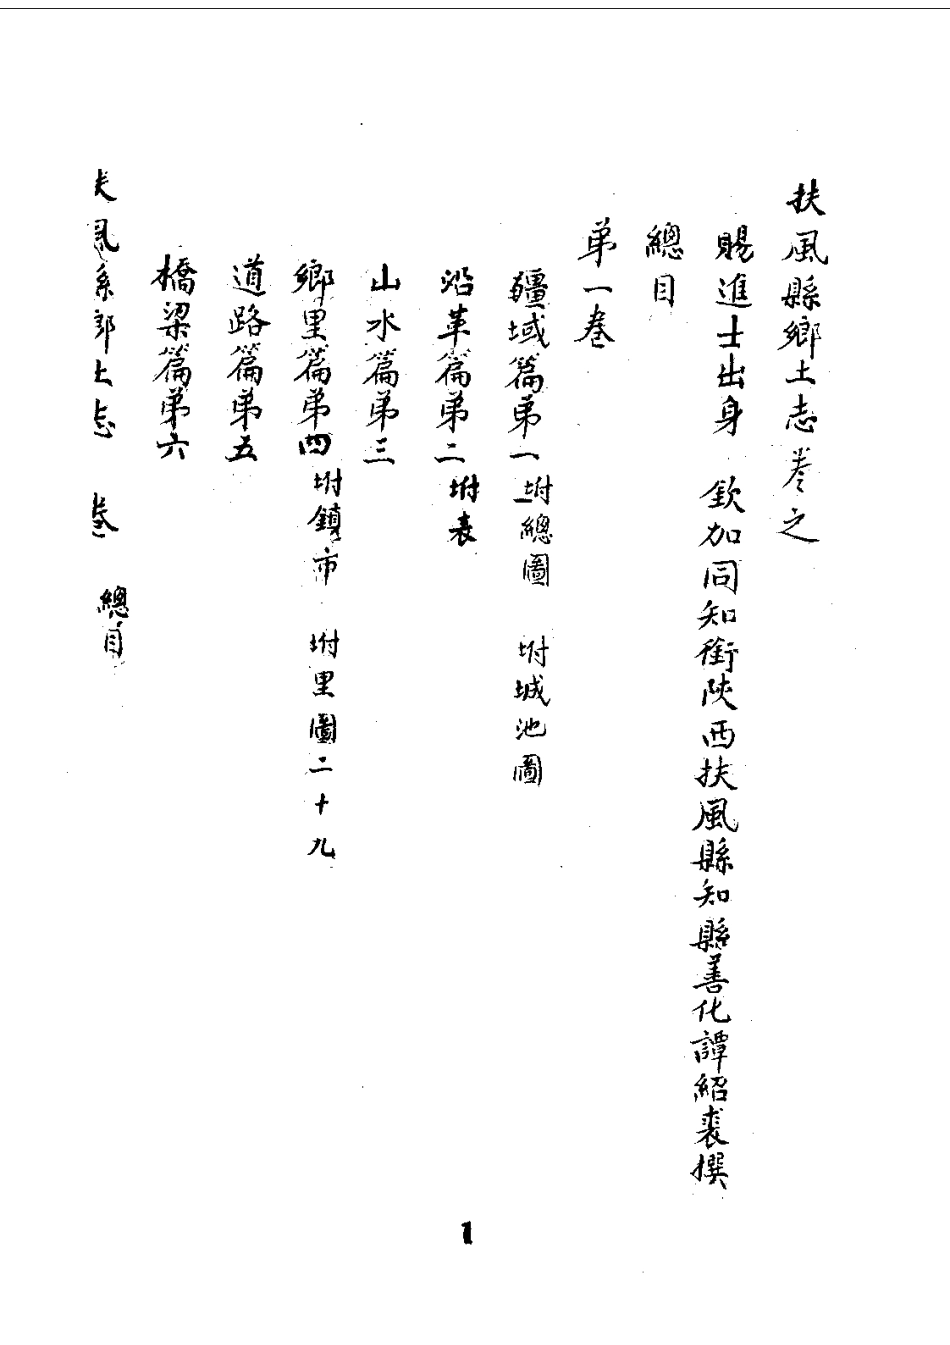 扶風縣鄉土志卷之
賜進士出身 欽加同知銜陝西扶風縣知縣善化譚紹裘撰
總目
弟一卷
疆域篇弟一坿總圖 坿城池圖
沿革篇弟二坿表
山水篇弟三
鄉里篇弟四坿鎮市 坿里圖二十九
道路篇弟五
橋梁篇弟六
扶風縣鄉土志 卷 總目
1